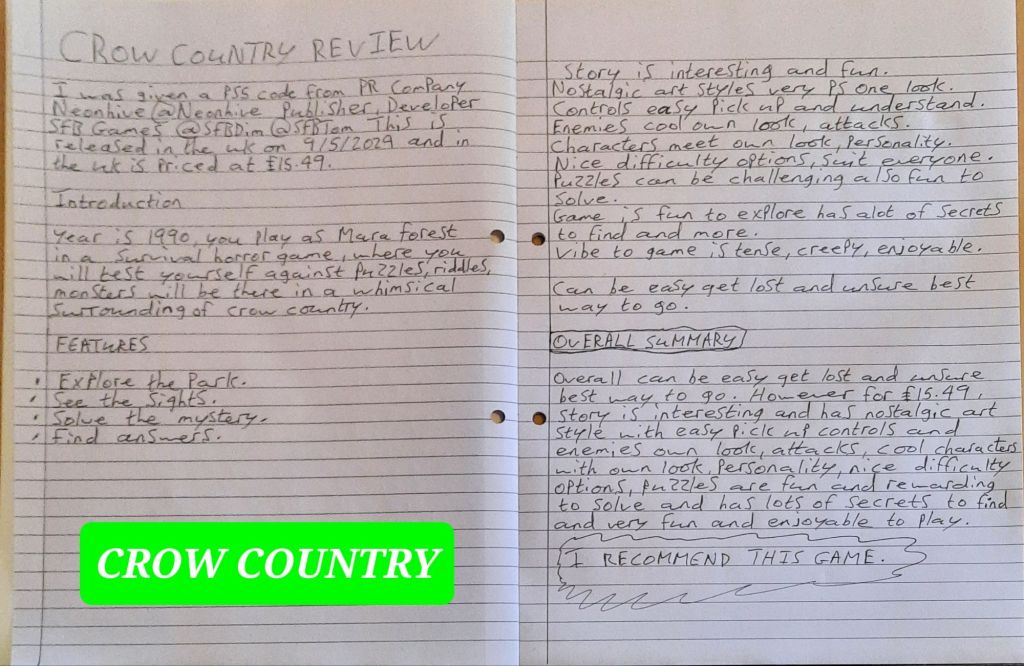 CROW COUNTRY REVIEW
I was given a PS5 code from PR Company
Neonhive @Neonhive Publisher, Developer
SFB Games @SFBDim @SFBTom This is
released in the uk on 9/5/2024 and in
the uk is Priced at £15.49.
Introduction
Year is 1990, you play as Mara forest
in a survival horror game, where you
will test yourself against Puzzles, riddles,
monsters will be there in a whimsical
surrounding of crow country.
FEATURES
• Explore the Park.
• See the Sights.
• Solve the mystery.
• Find answers.
CROW COUNTRY
Story is interesting and fun.
Nostalgic art styles very PS one look.
Controls easy Pick up and understand.
Enemies cool own look, attacks.
Characters meet own look, Personality.
Nice difficulty options, suit everyone.
Puzzles can be challenging also fun to
solve.
Game is fun to explore has alot of secrets
to find and more.
Vibe to game is tense, creepy, enjoyable.
Can be easy get lost and unsure best
way to go.
OVERALL SUMMARY
Overall can be easy get lost and unsure
best way to go. However for £15.49,
Story is interesting and has nostalgic art
style with easy Pick up controls and
enemies own look, attacks, cool characters
with own look, Personality, nice difficulty
options, Puzzles are fun and rewarding
to solve and has lots of secrets to find
and very fun and enjoyable to Play.
I RECOMMEND THIS GAME.